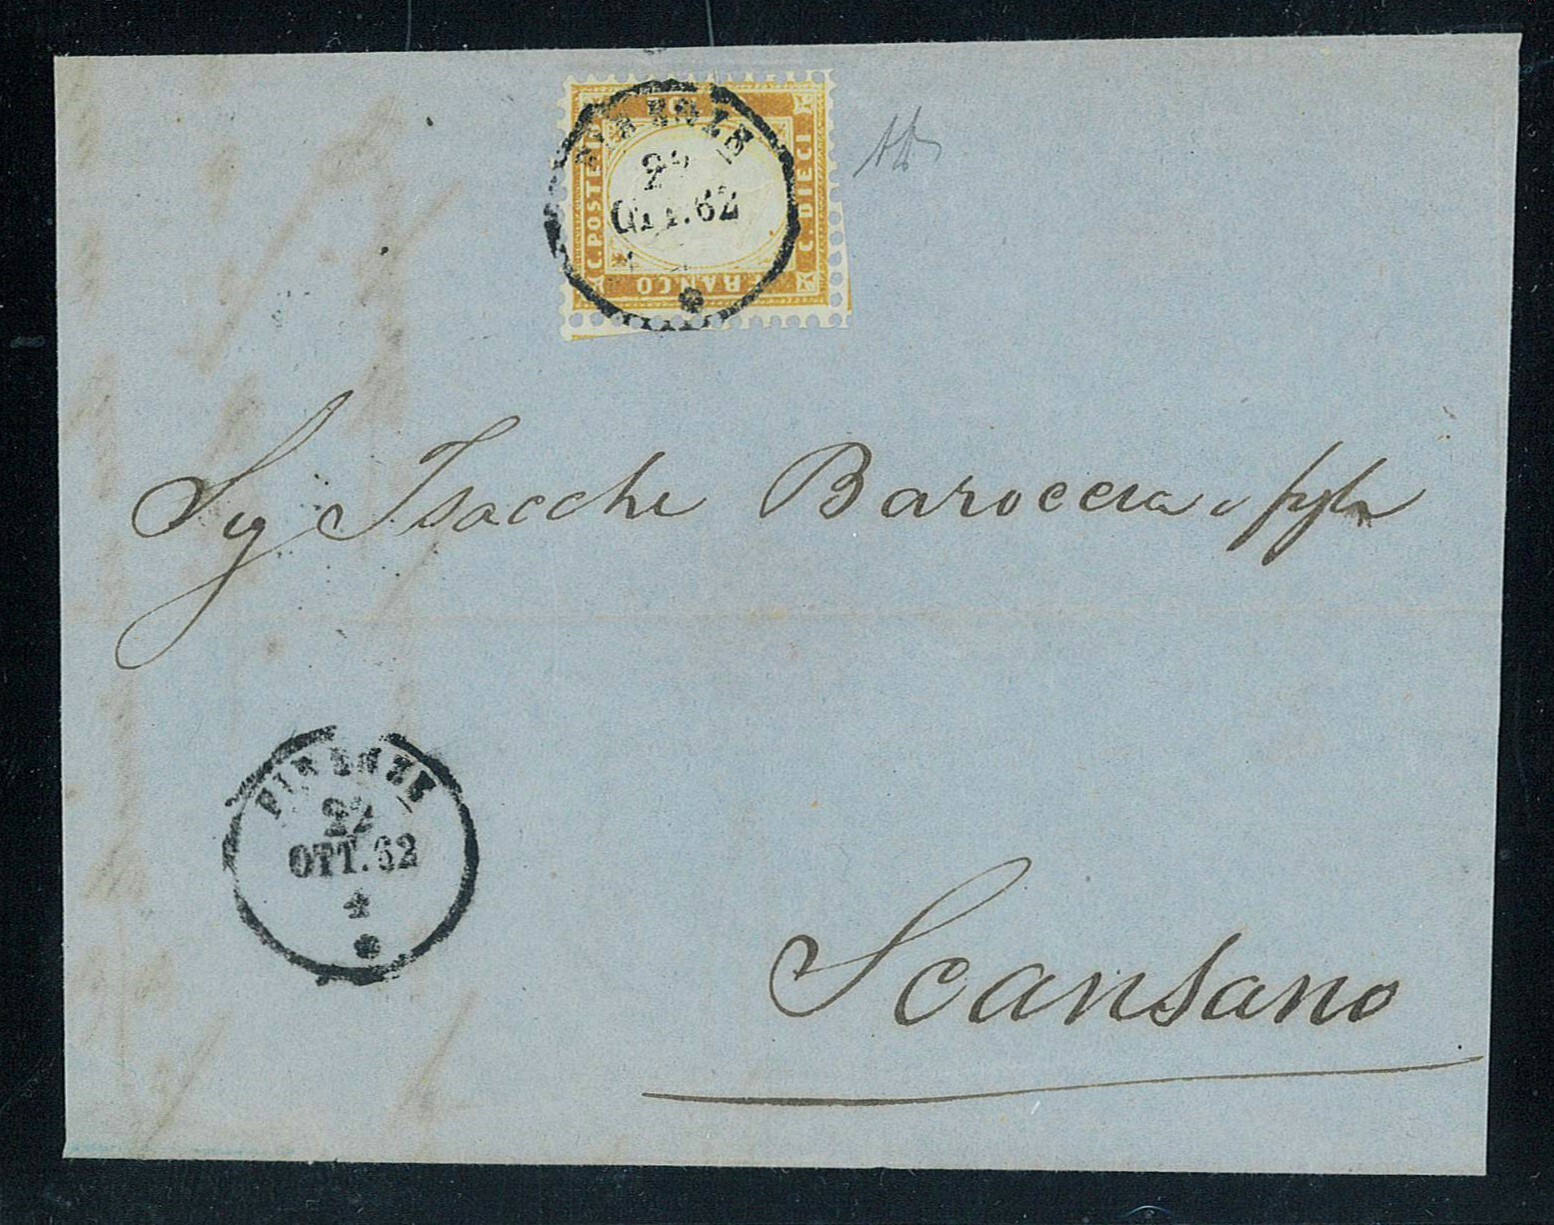 FIRENZE
22
OTT.62
C.POSTE
FRANCO
C. DIECI
Sig Isacche Baroccia e figlio
FIRENZE
22
OTT.62
Scansano